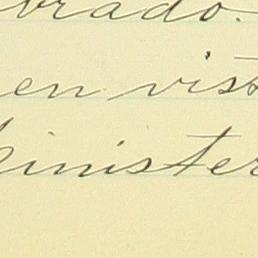 brado.
en vist
minister